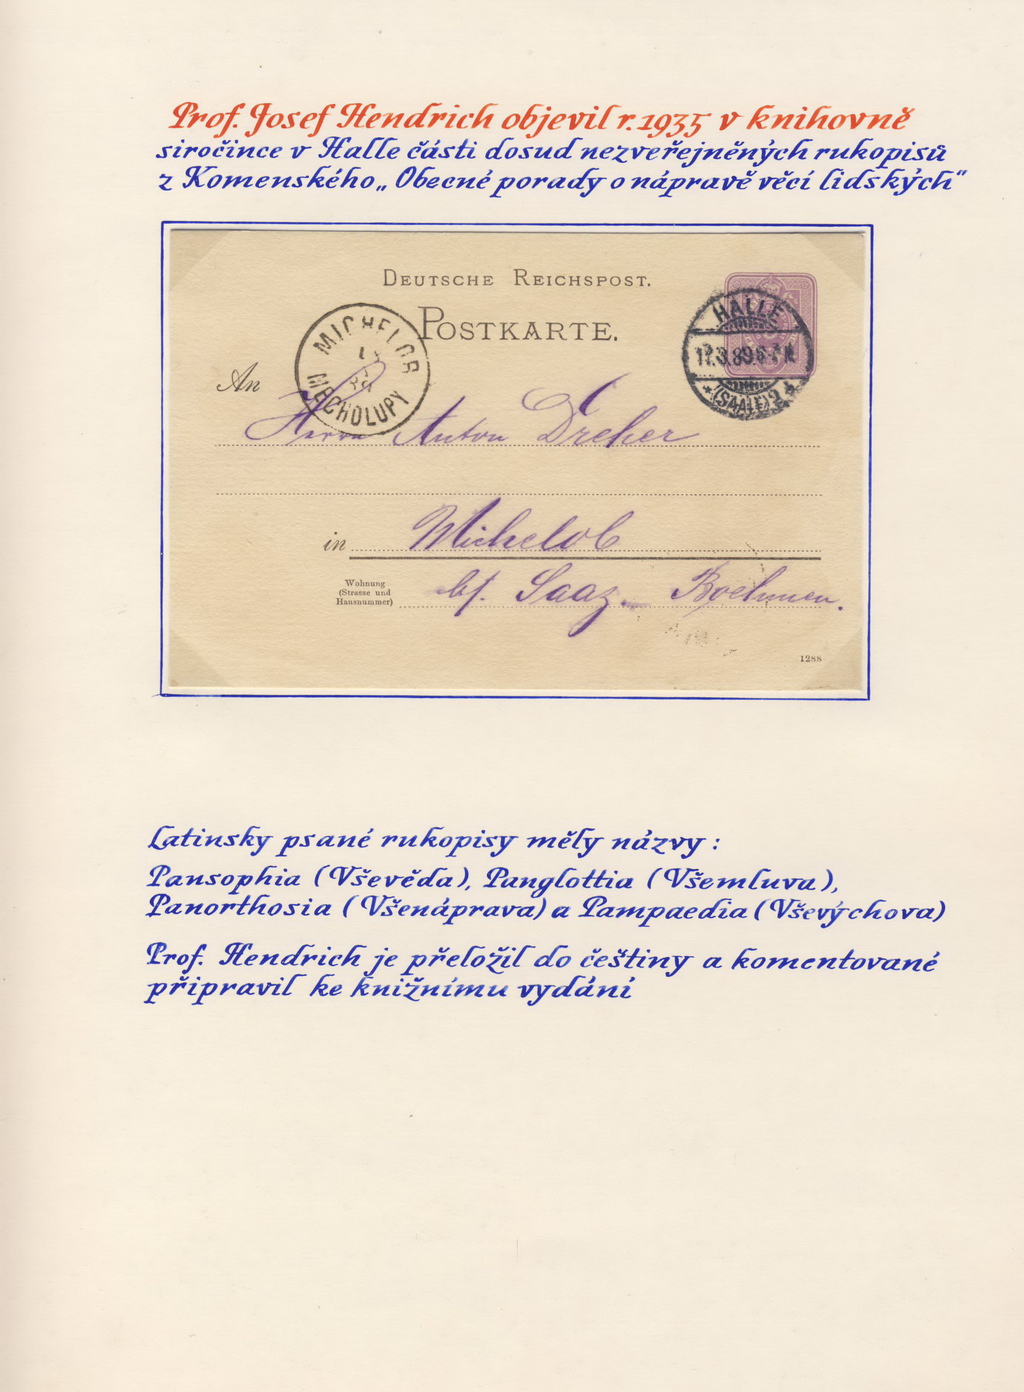 Prof. Josef Hendrich objevil r. 1935 v knihovně
siročince v Halle části dosud nezveřejněných rukopisů
z Komenského „Obecné porady o nápravě věcí lidských“
DEUTSCHE REICHSPOST.
POSTKARTE.
HALLE
17.3.89.6-7N.
*(SAALE)2.*
MICHELOB
MĚCHOLUPY
An
Herrn Anton Dreher
in Michelob
Wohnung
(Strasse und
Hausnummer)
bf. Saaz. Boehmen.
1288
Latinsky psané rukopisy měly názvy :
Pansophia (Vševěda), Panglottia (Všemluva),
Panorthosia (Všenáprava) a Pampaedia (Vševýchova)
Prof. Hendrich je přeložil do češtiny a komentované
připravil ke knižnímu vydání